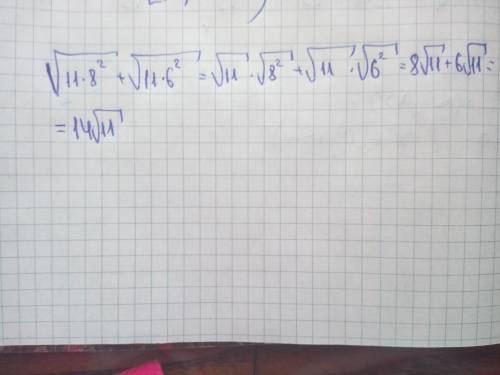 √(11·8²) + √(11·6²) = √11 · √8² + √11 · √6² = 8√11 + 6√11 =
= 14√11